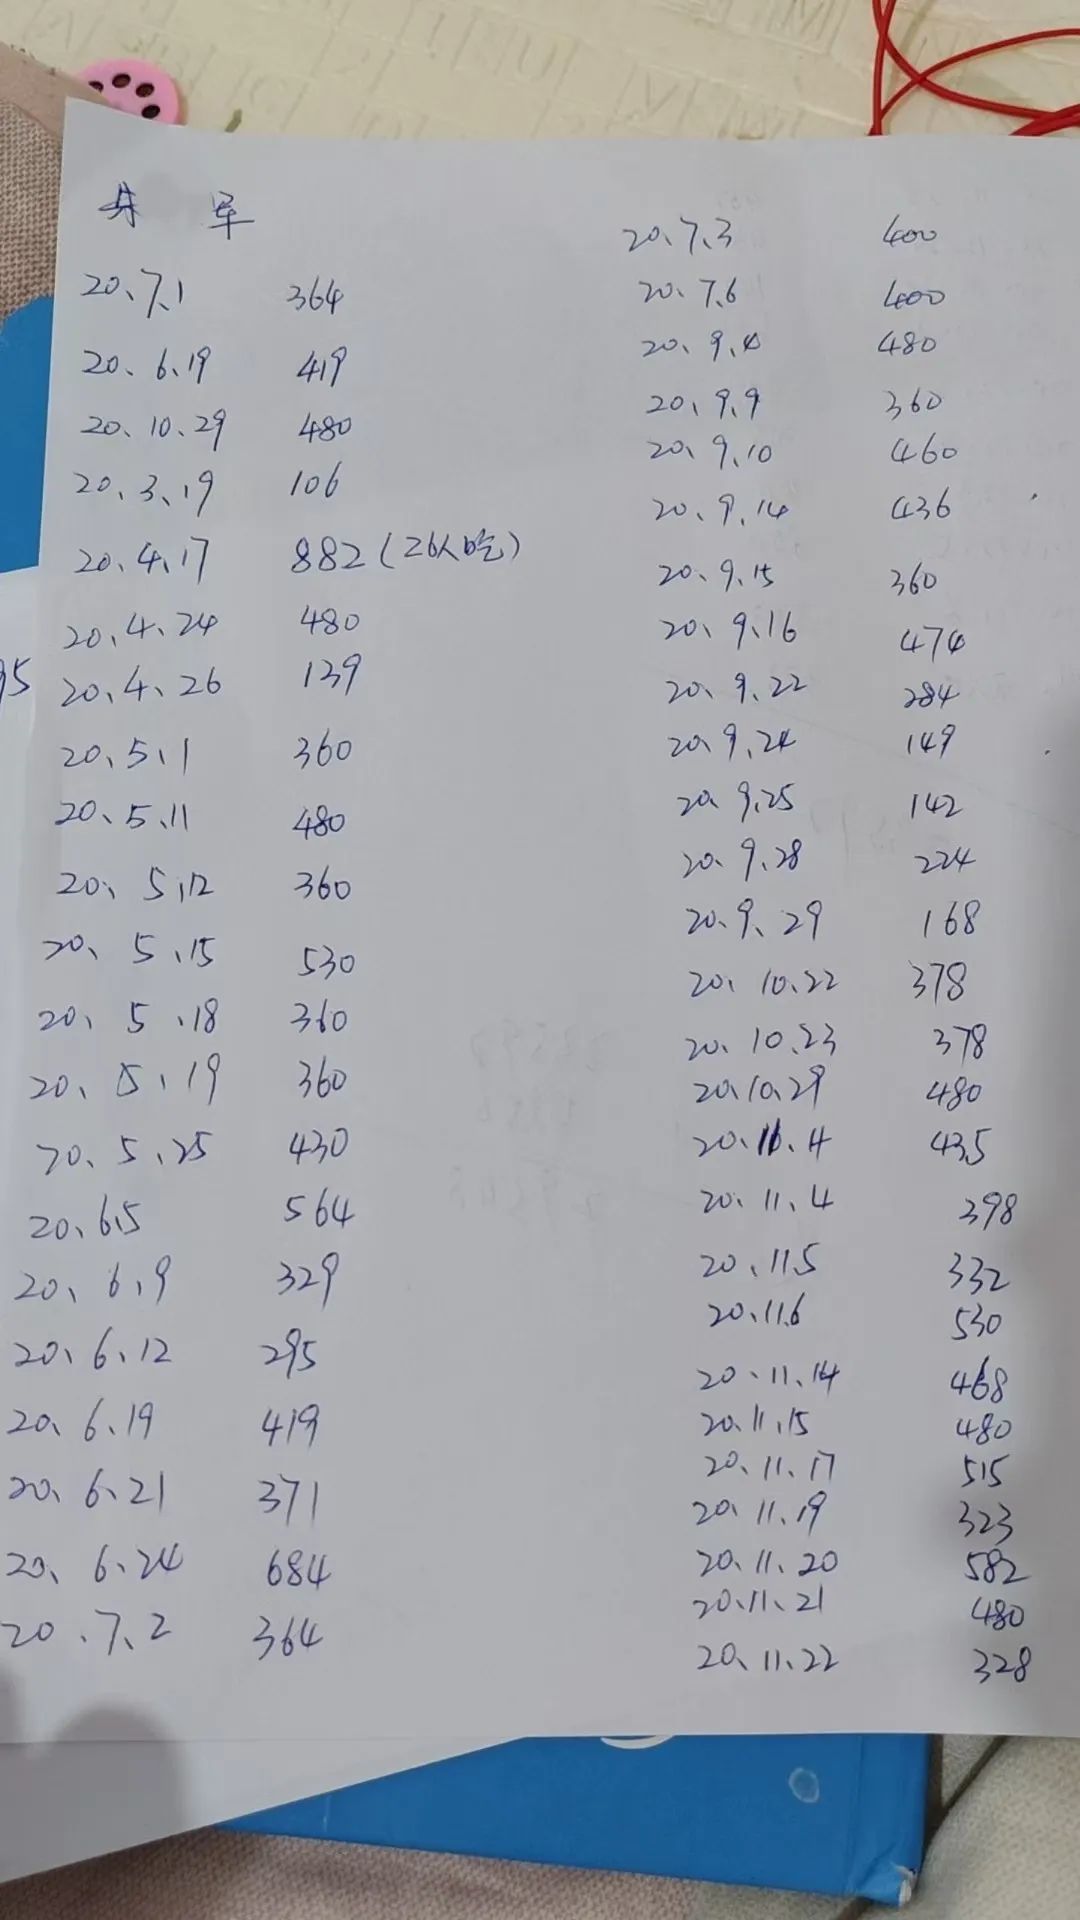 朱 军
20、7、1 364
20、6、19 419
20、10、29 480
20、3、19 106
20、4、17 882（26人吃）
20、4、24 480
20、4、26 139
20、5、1 360
20、5、11 480
20、5、12 360
20、5、15 530
20、5、18 360
20、5、19 360
20、5、25 430
20、6、5 564
20、6、9 329
20、6、12 295
20、6、19 419
20、6、21 371
20、6、24 684
20、7、2 364
20、7、3 400
20、7、6 400
20、9、4 480
20、9、9 360
20、9、10 460
20、9、14 436
20、9、15 360
20、9、16 474
20、9、22 284
20、9、24 149
20、9、25 142
20、9、28 224
20、9、29 168
20、10、22 378
20、10、23 378
20、10、29 480
20、11、4 435
20、11、4 398
20、11、5 332
20、11、6 530
20、11、14 468
20、11、15 480
20、11、17 515
20、11、19 323
20、11、20 582
20、11、21 480
20、11、22 328